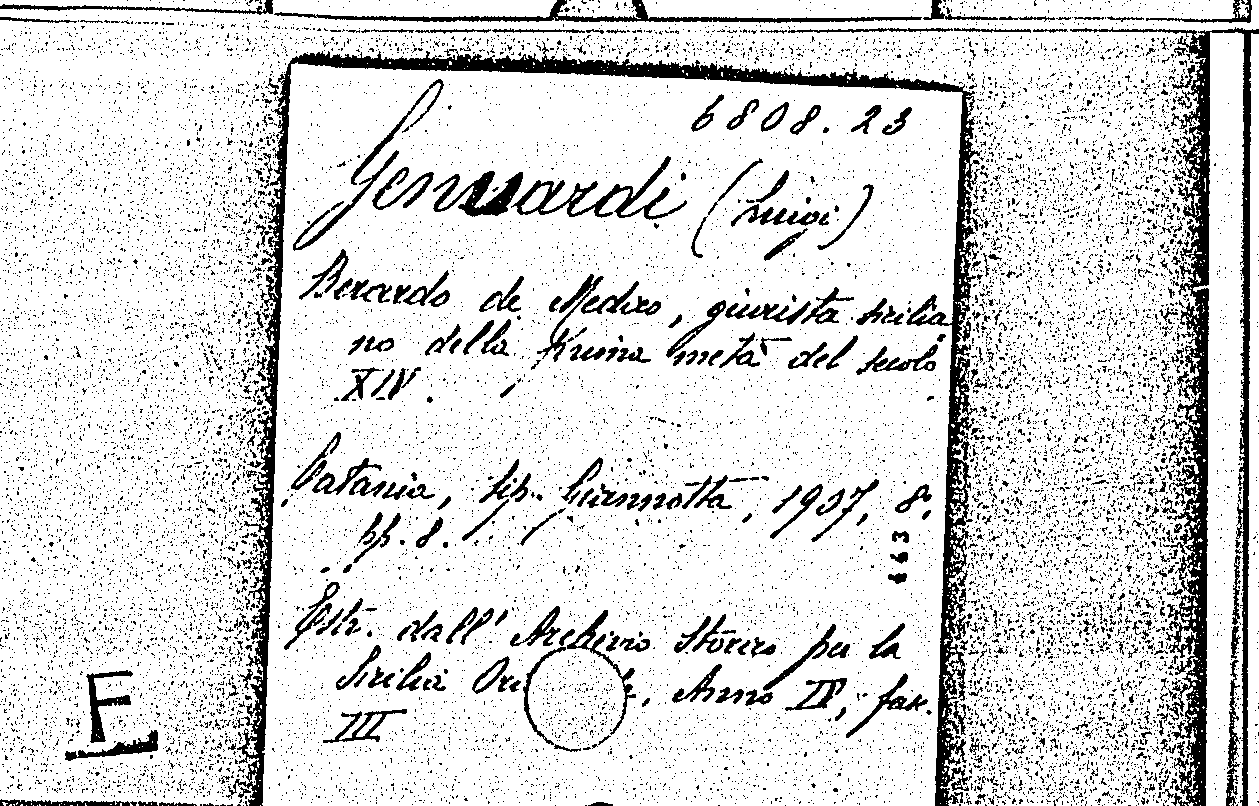 6808.23
Genuardi (Luigi)
Berardo de Medico, giurista sicilia
no della prima metà del secolo
XIV.
Catania, tip. Giannotta, 1937, 8,
pp. 8.
463
Estr. dall' Archivio Storico per la
Sicilia Ori e, Anno IV, fax.
III
F